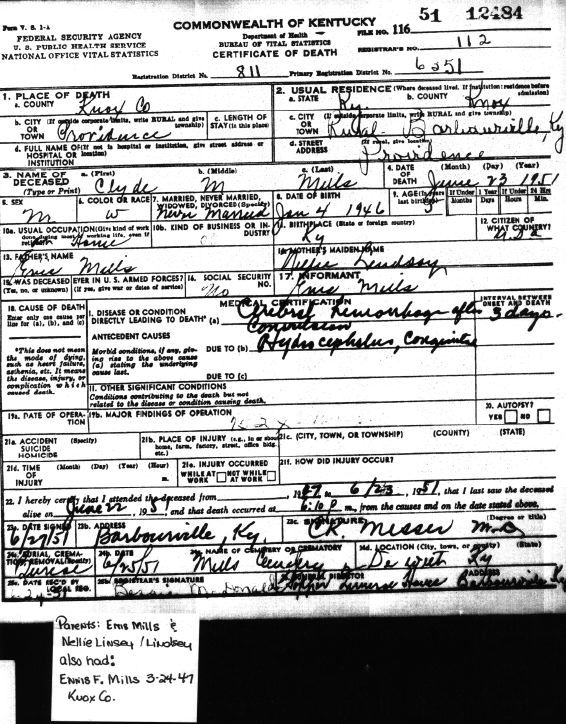 Form V. S. 1-A
FEDERAL SECURITY AGENCY
U. S. PUBLIC HEALTH SERVICE
NATIONAL OFFICE VITAL STATISTICS
COMMONWEALTH OF KENTUCKY
Department of Health
BUREAU OF VITAL STATISTICS
CERTIFICATE OF DEATH
FILE NO. 116 51 12484
REGISTRAR'S NO. 112
Registration District No. 811 Primary Registration District No. 6251
1. PLACE OF DEATH
a. COUNTY Knox Co
b. CITY (If outside corporate limits, write RURAL and give township) OR TOWN Providence
c. LENGTH OF STAY (in this place)
d. FULL NAME OF (If not in hospital or institution, give street address or location) HOSPITAL OR INSTITUTION
2. USUAL RESIDENCE (Where deceased lived. If institution: residence before admission)
a. STATE Ky. b. COUNTY Knox
c. CITY (If outside corporate limits, write RURAL and give township) OR TOWN Rural - Barbourville, Ky
d. STREET ADDRESS (If rural, give location) Providence
3. NAME OF DECEASED (Type or Print) a. (First) Clyde b. (Middle) M c. (Last) Mills
4. DATE OF DEATH (Month) (Day) (Year) June 23 1951
5. SEX M
6. COLOR OR RACE W
7. MARRIED, NEVER MARRIED, WIDOWED, DIVORCED (Specify) Never Married
8. DATE OF BIRTH Jan 4 1946
9. AGE (In years last birthday) 5 If Under 1 Year Months Days If Under 24 Hrs Hours Min.
10a. USUAL OCCUPATION (Give kind of work done during most of working life, even if retired) Home
10b. KIND OF BUSINESS OR INDUSTRY
11. BIRTHPLACE (State or foreign country) Ky
12. CITIZEN OF WHAT COUNTRY?
13. FATHER'S NAME Enis Mills
14. MOTHER'S MAIDEN NAME Nellie Lindsay
15. WAS DECEASED EVER IN U. S. ARMED FORCES? (Yes, no, or unknown) (If yes, give war or dates of service)
16. SOCIAL SECURITY NO. No
17. INFORMANT Enis Mills
18. CAUSE OF DEATH
Enter only one cause per line for (a), (b), and (c)
MEDICAL CERTIFICATION
INTERVAL BETWEEN ONSET AND DEATH
I. DISEASE OR CONDITION DIRECTLY LEADING TO DEATH* (a) Cerebral hemorrhage after convulsion 3 days
*This does not mean the mode of dying, such as heart failure, asthenia, etc. It means the disease, injury, or complication which caused death.
ANTECEDENT CAUSES
Morbid conditions, if any, giving rise to the above cause (a) stating the underlying cause last.
DUE TO (b) Hydrocephalus, Congenital
DUE TO (c)
II. OTHER SIGNIFICANT CONDITIONS
Conditions contributing to the death but not related to the disease or condition causing death.
19a. DATE OF OPERATION
19b. MAJOR FINDINGS OF OPERATION
20. AUTOPSY?
YES NO
21a. ACCIDENT SUICIDE HOMICIDE (Specify)
21b. PLACE OF INJURY (e.g., in or about home, farm, factory, street, office bldg. etc.)
21c. (CITY, TOWN, OR TOWNSHIP) (COUNTY) (STATE)
21d. TIME OF INJURY (Month) (Day) (Year) (Hour) m.
21e. INJURY OCCURRED WHILE AT WORK NOT WHILE AT WORK
21f. HOW DID INJURY OCCUR?
22. I hereby certify that I attended the deceased from 1947 to 6/23, 1951, that I last saw the deceased
alive on June 22, 1951 and that death occurred at 6:10 P m., from the causes and on the date stated above.
23a. DATE SIGNED 6/27/51
23b. ADDRESS Barbourville, Ky.
23c. SIGNATURE (Degree or title) CR. Messer M.D
24a. BURIAL, CREMATION, REMOVAL (Specify)
24b. DATE 6/25/51
24c. NAME OF CEMETERY OR CREMATORY Mills Cemetery
24d. LOCATION (City, town, or county) (State) De Witt Ky
25a. DATE REC'D BY LOCAL REG.
25b. REGISTRAR'S SIGNATURE McDonald
FUNERAL DIRECTOR ADDRESS Hopper Funeral Home Barbourville Ky
Parents: Enis Mills &
Nellie Linsey / Lindsey
also had:
Ennis F. Mills 3-24-47
Knox Co.